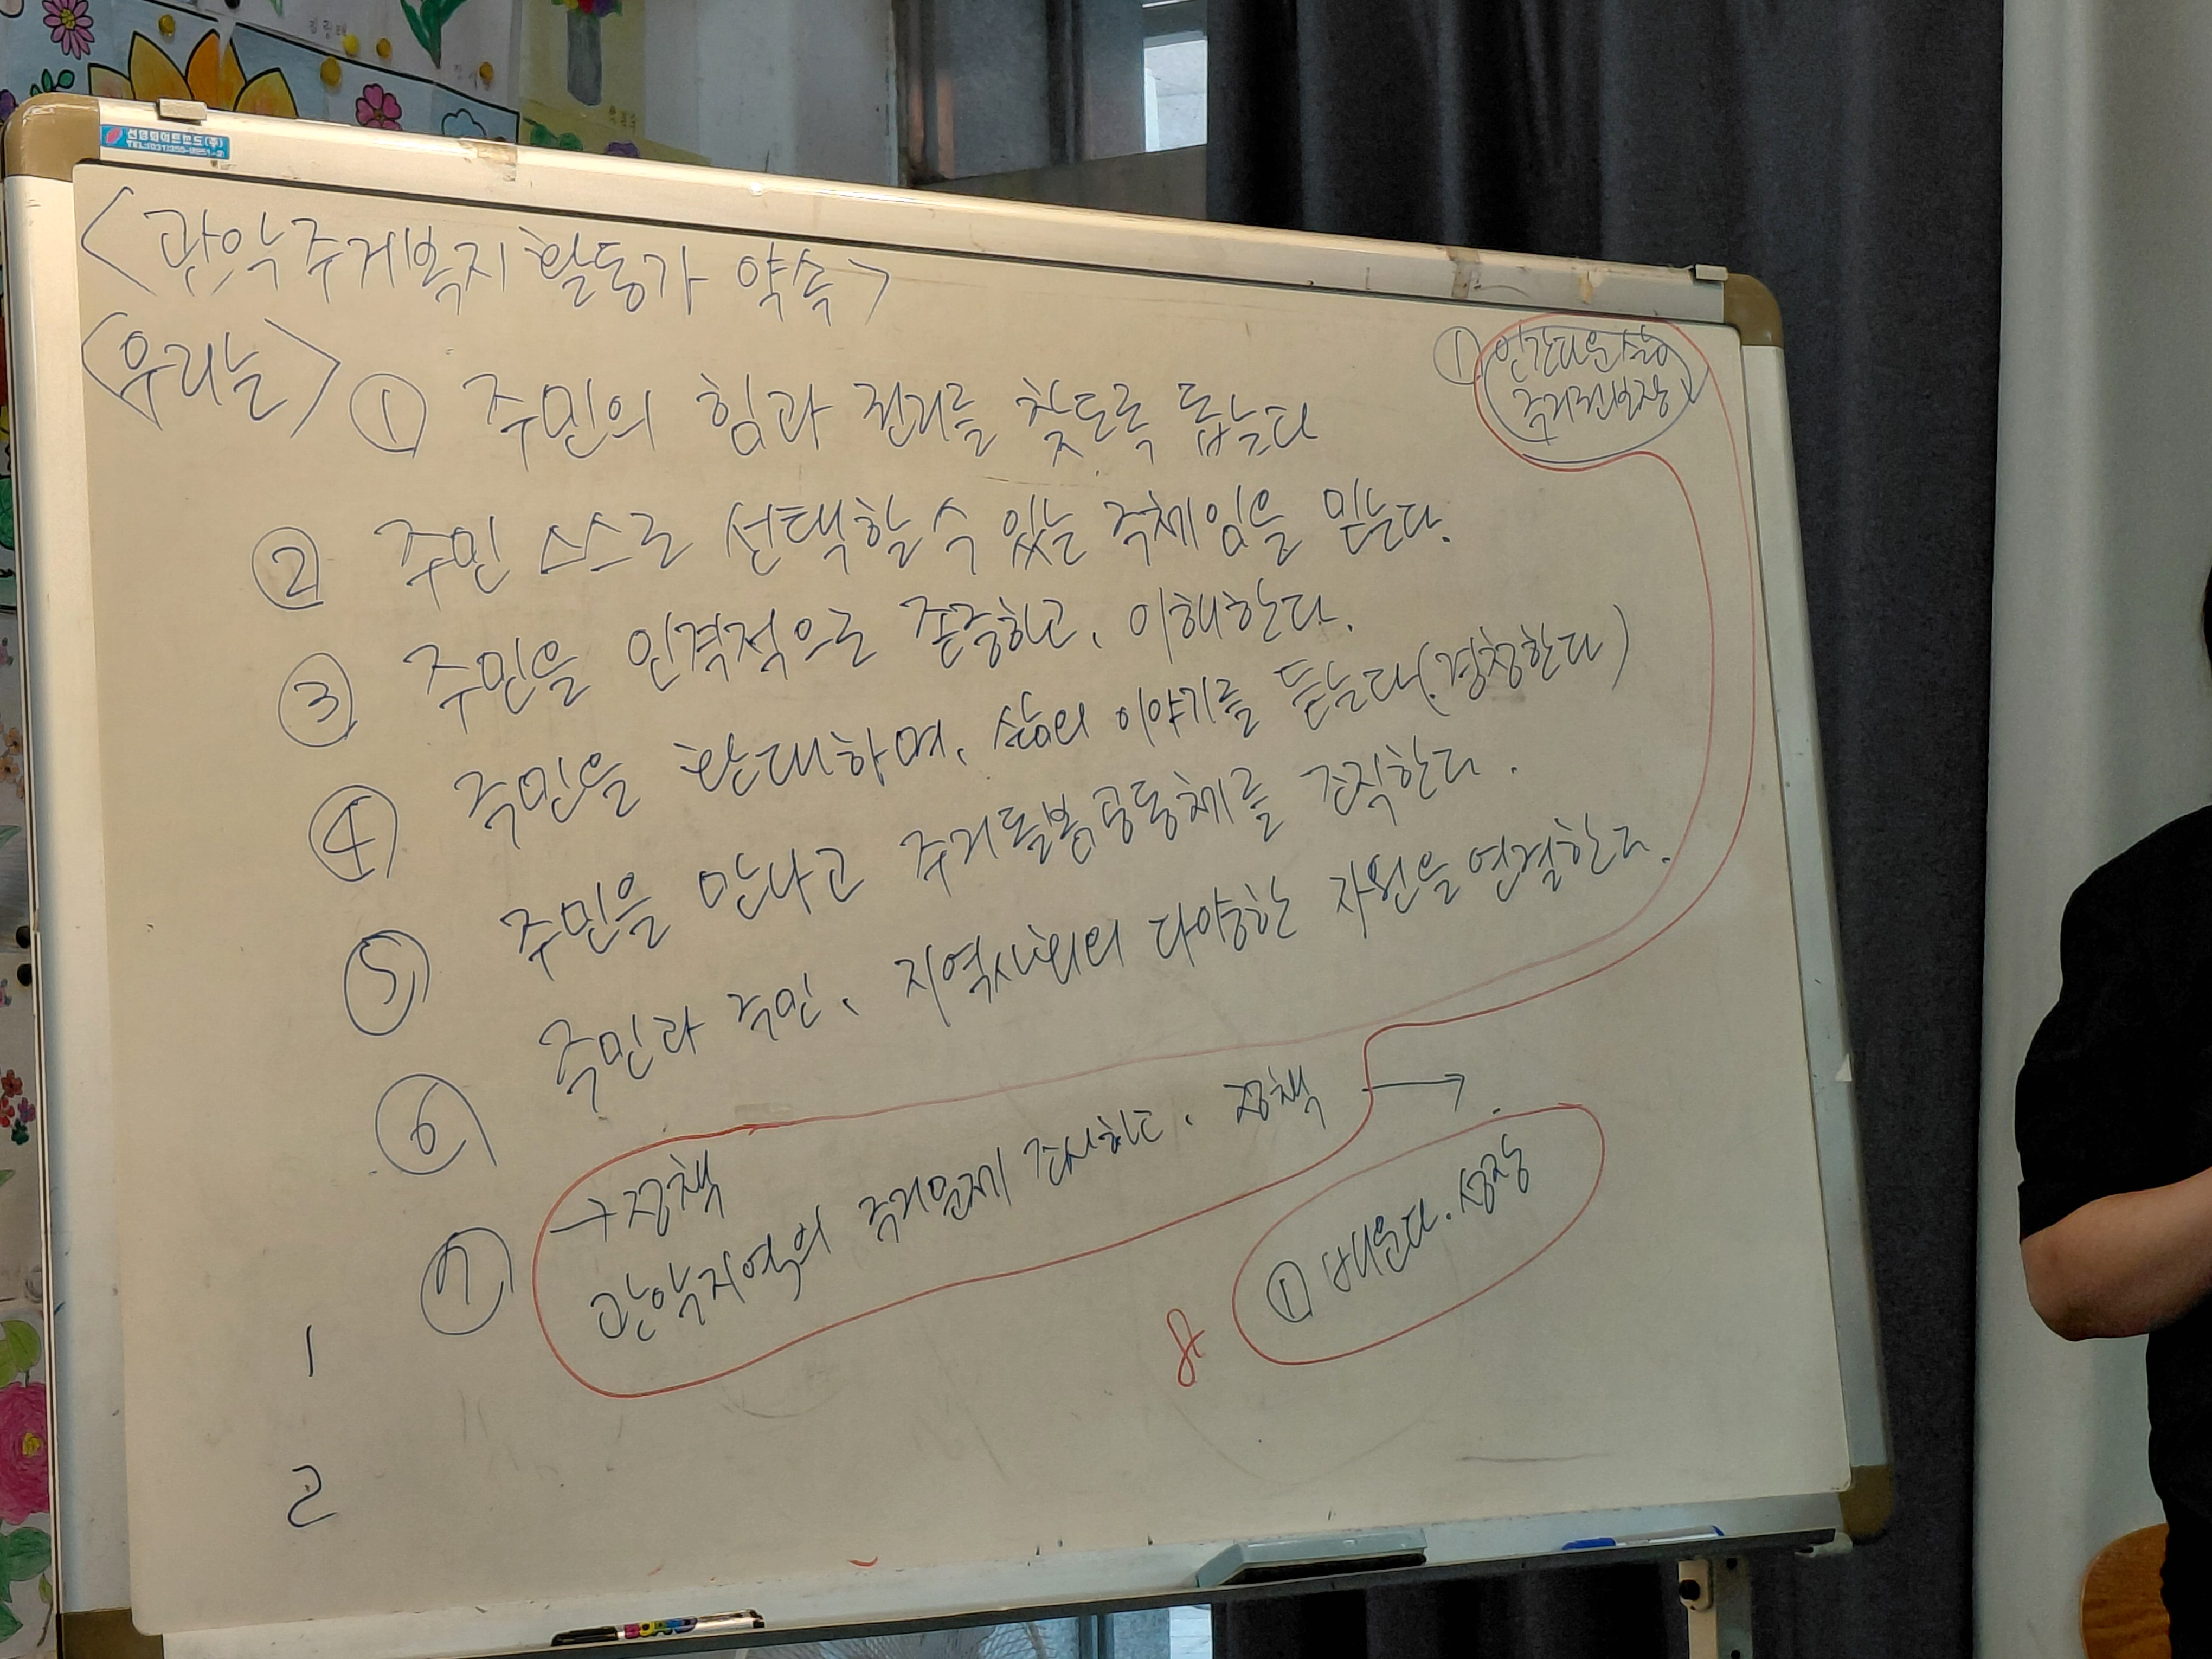 선영화이트보드(주)
<관악주거복지활동가 약속>
<우리는>
① 주민의 힘과 권리를 찾도록 돕는다
① 인간다운 삶
주거권보장
② 주민 스스로 선택할 수 있는 주체임을 믿는다.
③ 주민을 인격적으로 존중하고, 이해한다.
④ 주민을 환대하며, 삶의 이야기를 듣는다(경청한다)
⑤ 주민을 만나고 주거돌봄공동체를 조직한다.
⑥ 주민과 주민, 지역사회의 다양한 자원을 연결한다.
⑦ → 정책
관악지역의 주거문제 조사하고, 정책 →
8 ① 배운다. 성장
1
2